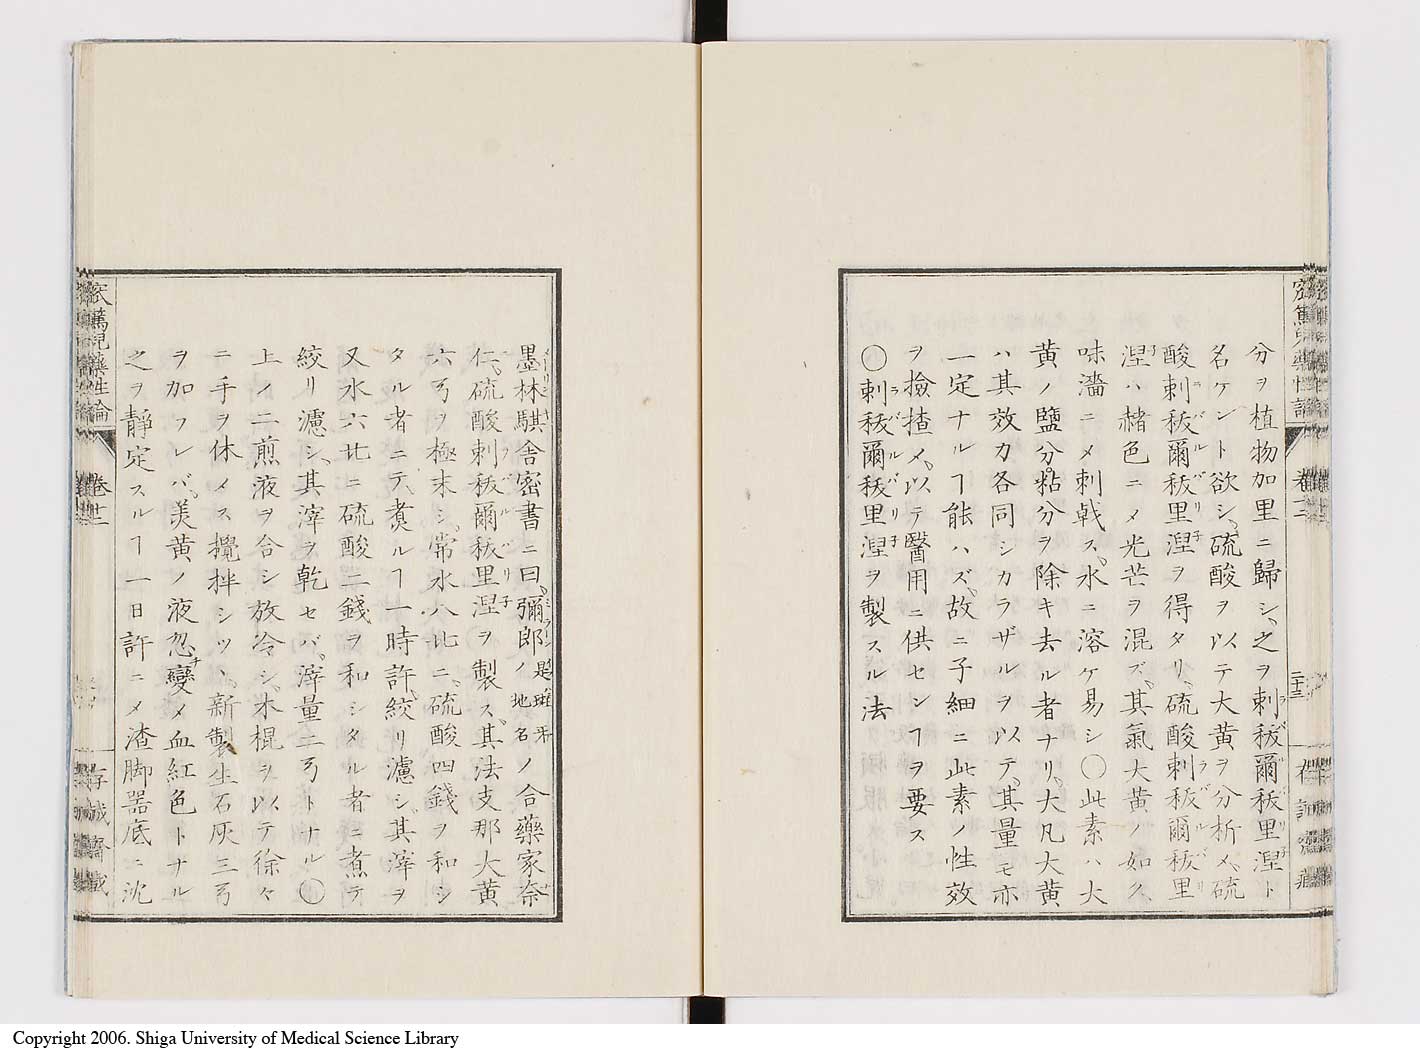 分ヲ植物加里ニ歸シ、之ヲ刺秡爾秡里涅ト
名ケント欲シ、硫酸ヲ以テ大黄ヲ分析メ、硫
酸刺秡爾秡里涅ヲ得タリ、硫酸刺秡爾秡里
涅ハ赭色ニメ光芒ヲ混ズ、其氣大黄ノ如ク、
味濇ニメ刺戟ス、水ニ溶ケ易シ〇此素ハ大
黄ノ鹽分粘分ヲ除キ去ル者ナリ、大凡大黄
ハ其效力各同シカラザルヲ以テ、其量モ亦
一定ナルヿ能ハズ、故ニ子細ニ此素ノ性效
ヲ撿揸メ、以テ醫用ニ供センヿヲ要ス
〇刺秡爾秡里涅ヲ製スル法
墨林騏舎密書ニ曰、彌郎ノ地名ノ合藥家奈
仁、硫酸刺秡爾秡里涅ヲ製ス、其法支那大黄
六弓ヲ極末シ、常水八比ニ、硫酸四錢ヲ和シ
タル者ニテ、煮ルヿ一時許、絞リ濾シ、其滓ヲ
又水六比ニ硫酸二錢ヲ和シタル者ニ煮テ
絞リ濾シ、其滓ヲ乾セバ、滓量二弓トナル〇
上ノ二煎液ヲ合シ放冷シ、木棍ヲ以テ徐々
ニ手ヲ休メス攪拌シツヽ、新製生石灰三弓
ヲ加フレバ、美黄ノ液忽チ變メ血紅色トナル
之ヲ靜定スルヿ一日許ニメ渣脚器底ニ沈
卷十二
二十三
Copyright 2006. Shiga University of Medical Science Library